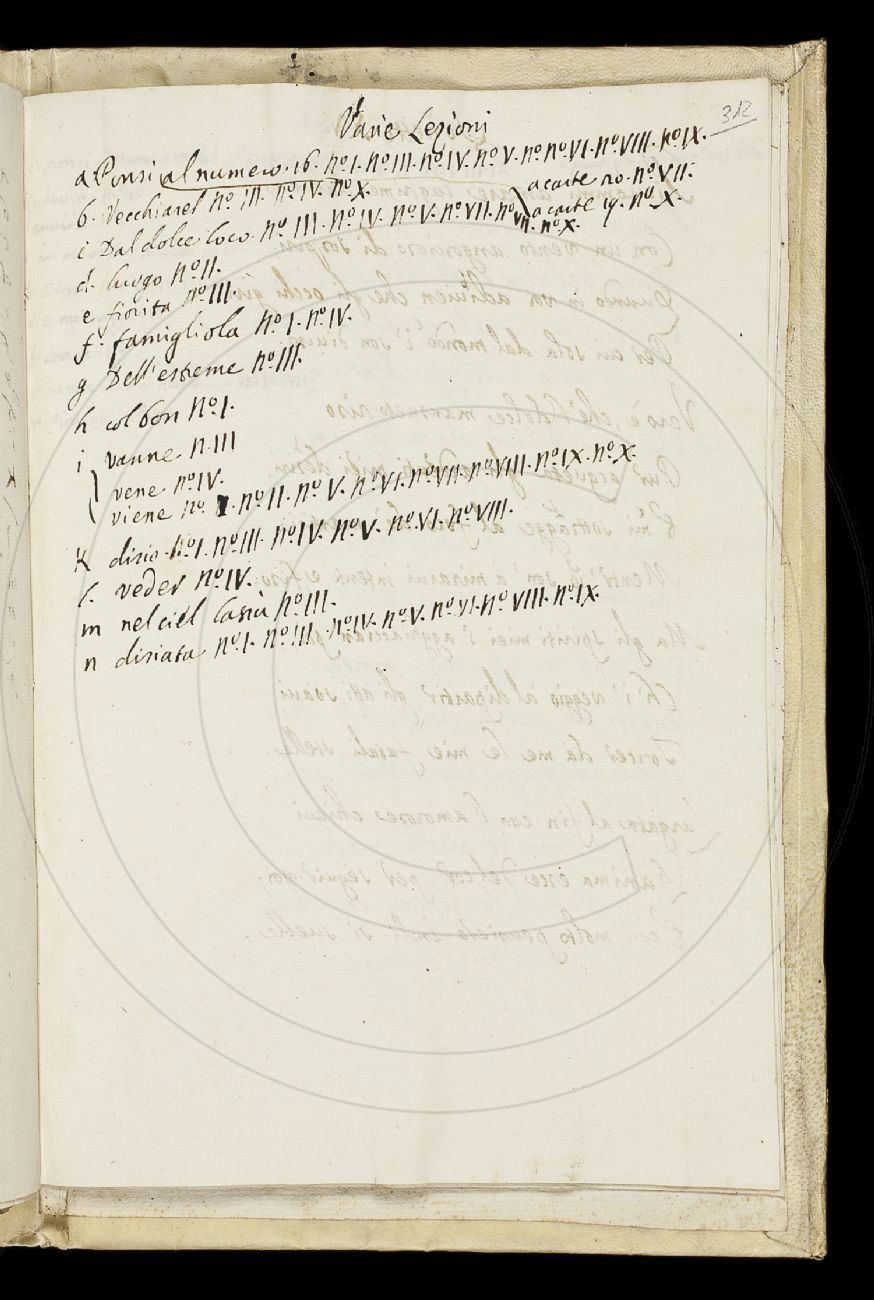 312
Varie Lezioni
a Ponsi al numero. 16. nº I. nº III. nº IV. nº V. nº nº VI. nº VIII. nº IX.
a carte 20. nº VII.
a carte 19. nº X.
b. Vecchiarel nº III. nº IV. nº X.
c Dal dolce loco. nº III. nº IV. nº V. nº VII. nº VII. nº X.
d. luogo nº II.
e fiorita nº III.
f. famigliola nº I. nº IV.
g Dell'estreme nº III.
h col bon nº I.
i vanne n. III
vene nº IV.
viene nº. I. nº II. nº V. nº VI. nº VII. nº VIII. nº IX. nº X.
K disio. nº I. nº III. nº IV. nº V. nº VI. nº VIII.
l. veder nº IV.
m nel ciel lassù nº III.
n disiata nº I. nº III. nº IV. nº V. nº VI. nº VIII. nº IX.